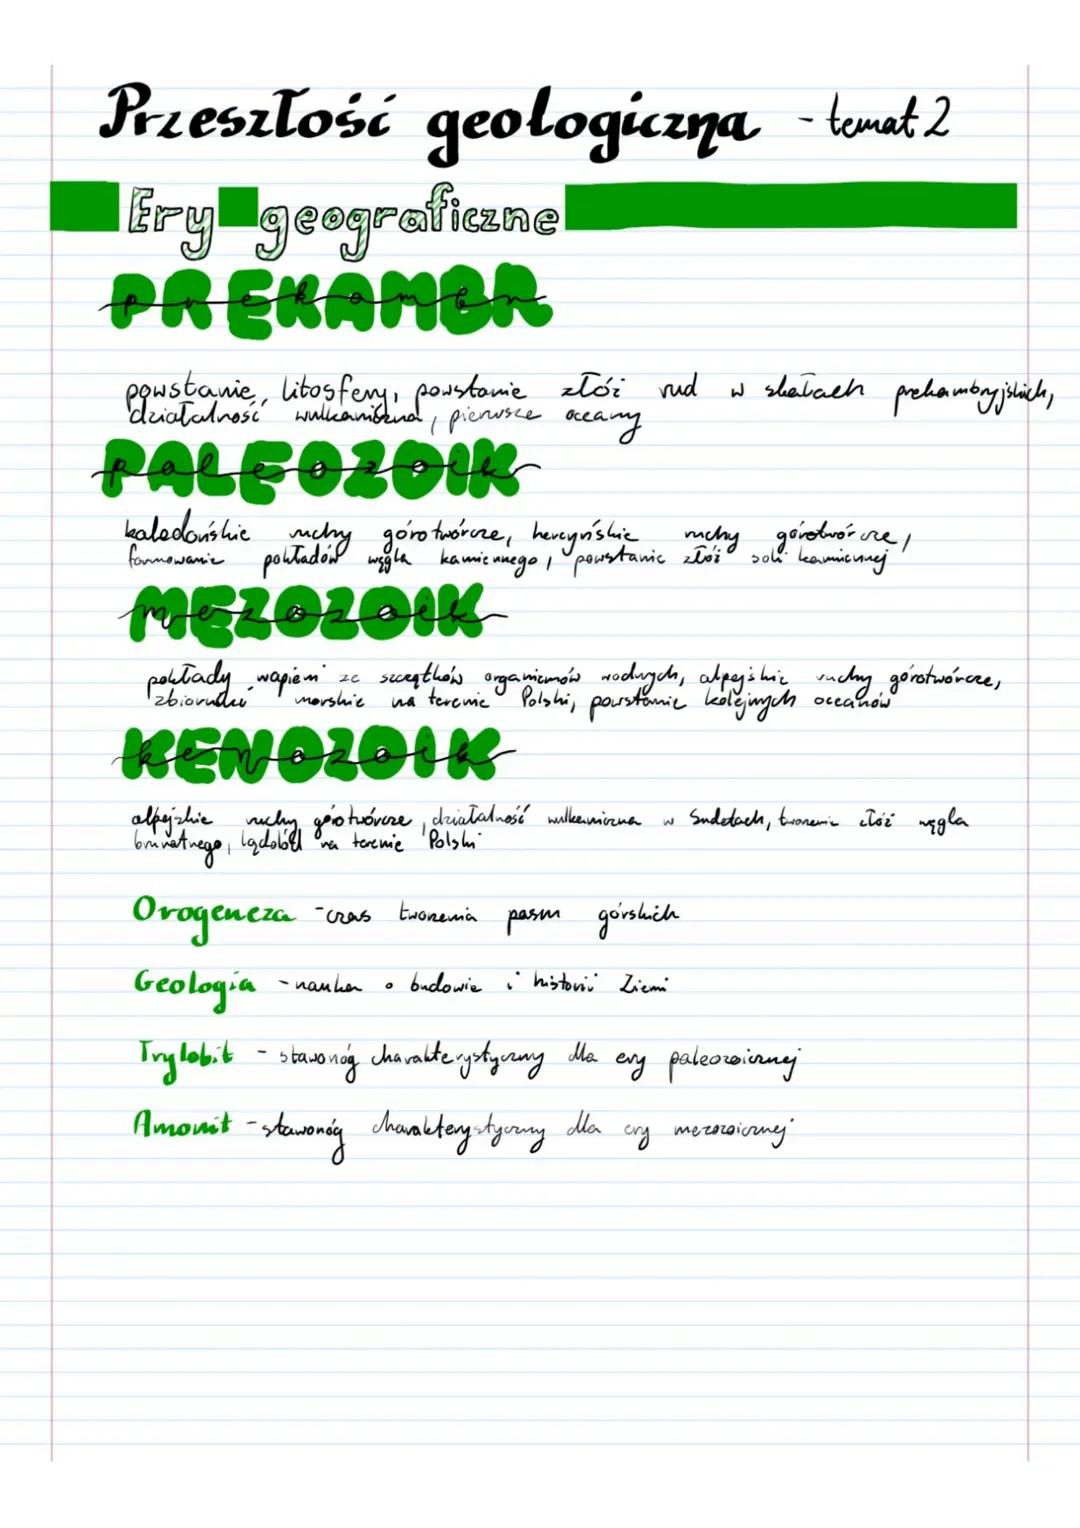 Przeszłość geologiczna - temat 2
Ery geograficzne
PREKAMBR
prekambr
powstanie litosfery, powstanie złóż rud w skałach prekambryjskich,
działalność wulkaniczna, pierwsze oceany
PALEOZOIK
paleozoik
kaledońskie ruchy górotwórcze, hercyńskie ruchy górotwórcze,
formowanie pokładów węgla kamiennego, powstanie złóż soli kamiennej
MEZOZOIK
mezozoik
pokłady wapieni ze szczętków organizmów wodnych, alpejskie ruchy górotwórcze,
zbiorniki morskie na terenie Polski, powstanie kolejnych oceanów
KENOZOIK
kenozoik
alpejskie ruchy górotwórcze, działalność wulkaniczna w Sudetach, tworzenie złóż węgla
brunatnego, lądolód na terenie Polski
Orogeneza - czas tworzenia pasm górskich
Geologia - nauka o budowie i historii Ziemi
Trylobit - stawonóg charakterystyczny dla ery paleozoicznej
Amonit - stawonóg charakterystyczny dla ery mezozoicznej